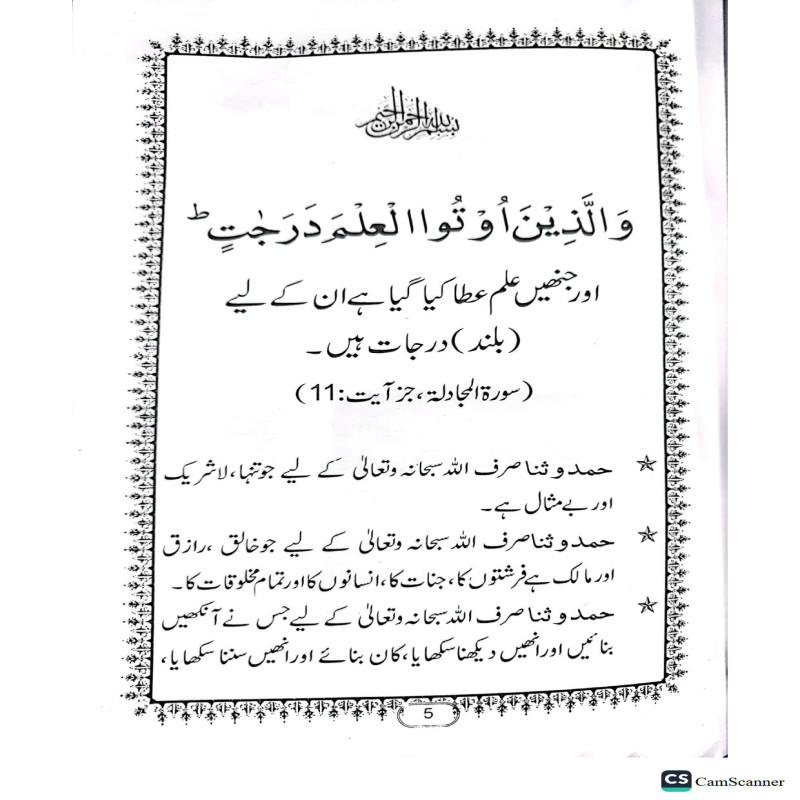 بسم الله الرحمن الرحيم
وَالَّذِيْنَ اُوْتُوا الْعِلْمَ دَرَجٰتٍ ؕ
اور جنھیں علم عطا کیا گیا ہے ان کے لیے
(بلند) درجات ہیں۔
(سورۃ المجادلۃ، جز آیت: 11)
★ حمد و ثنا صرف اللہ سبحانہ وتعالیٰ کے لیے جو تنہا، لا شریک
اور بے مثال ہے۔
★ حمد و ثنا صرف اللہ سبحانہ وتعالیٰ کے لیے جو خالق، رازق
اور مالک ہے فرشتوں کا، جنات کا، انسانوں کا اور تمام مخلوقات کا۔
★ حمد و ثنا صرف اللہ سبحانہ وتعالیٰ کے لیے جس نے آنکھیں
بنائیں اور انھیں دیکھنا سکھایا، کان بنائے اور انھیں سننا سکھایا،
5
CS CamScanner